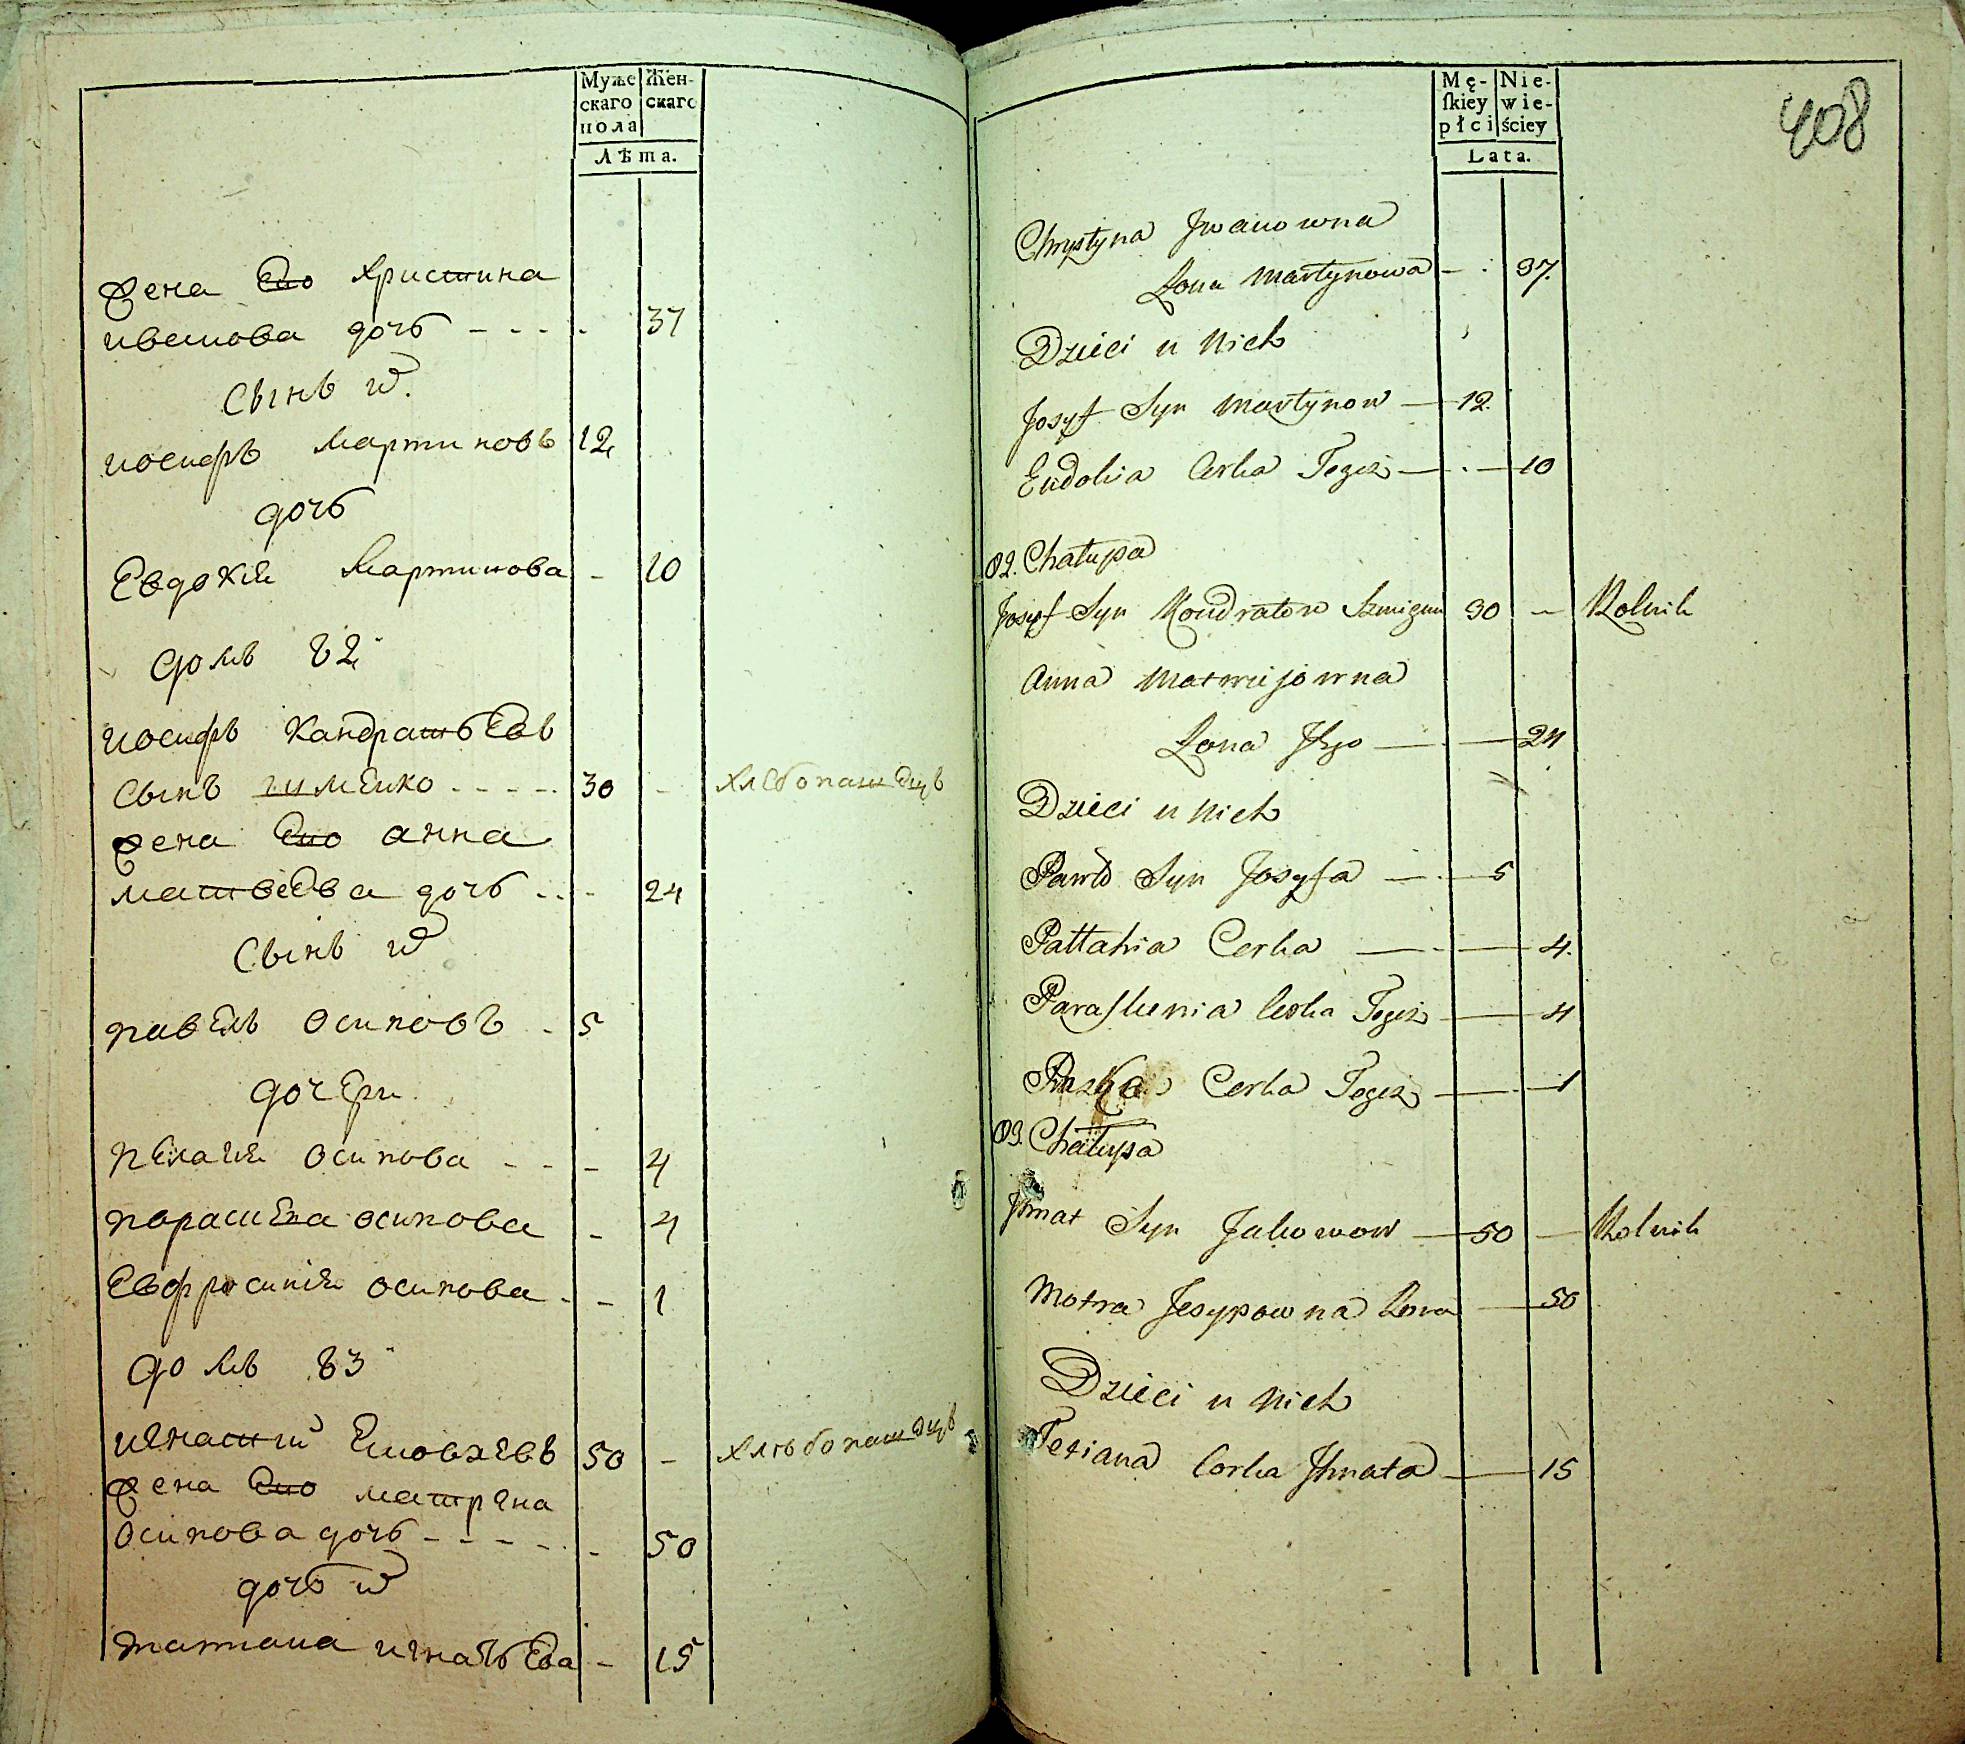 Муже
скаго
пола
Жен-
скаго
Лѣта.
жена его христина
иванова дочь - - - - 37
сынъ ѿ.
иосифъ мартиновъ 12
дочь
Евдокия Мартинова - 10
домъ 82
иосифъ кандратьевъ
сынъ - - - - 30 - хлебопашецъ
жена его анна
матвеева дочь - - - 24
сынъ ѿ
павелъ осиповъ - 5
дочери
пелагия осипова - - - 4
парасцева осипова - 4
Евфросиния осипова - - 1
домъ 83
игнатий 50 - хлѣбопашецъ
жена его матрена
осипова дочь - - - - - - 50
дочь ѿ
татиана игнатьева - 15
Mę-
ſkiey
płci
Nie-
wie-
ściey
Lata.
408
Chrystyna Jwanowna
Zona Martynowa - . 37.
Dzieci u nich
Josyf Syn Martynow — 12.
Eudokia Corka Tegoż — . — 10
82. Chałupa
Josyf Syn Kondratow 30 — Rolnik
Anna Matwiejowna
Zona Jego — — 24
Dzieci u nich
Paweł Syn Josyfa — . — 5
Pałłahia Corka — . — 4.
Paraſkenia Corka Tegoż — 4
Corka Tegoż — . — 1
83. Chałupa
Jhnat Syn Jakowow — 50 — Rolnik
Motra Jesypowna Zona — 50
Dzieci u nich
Tetiana Corka Jhnata — 15